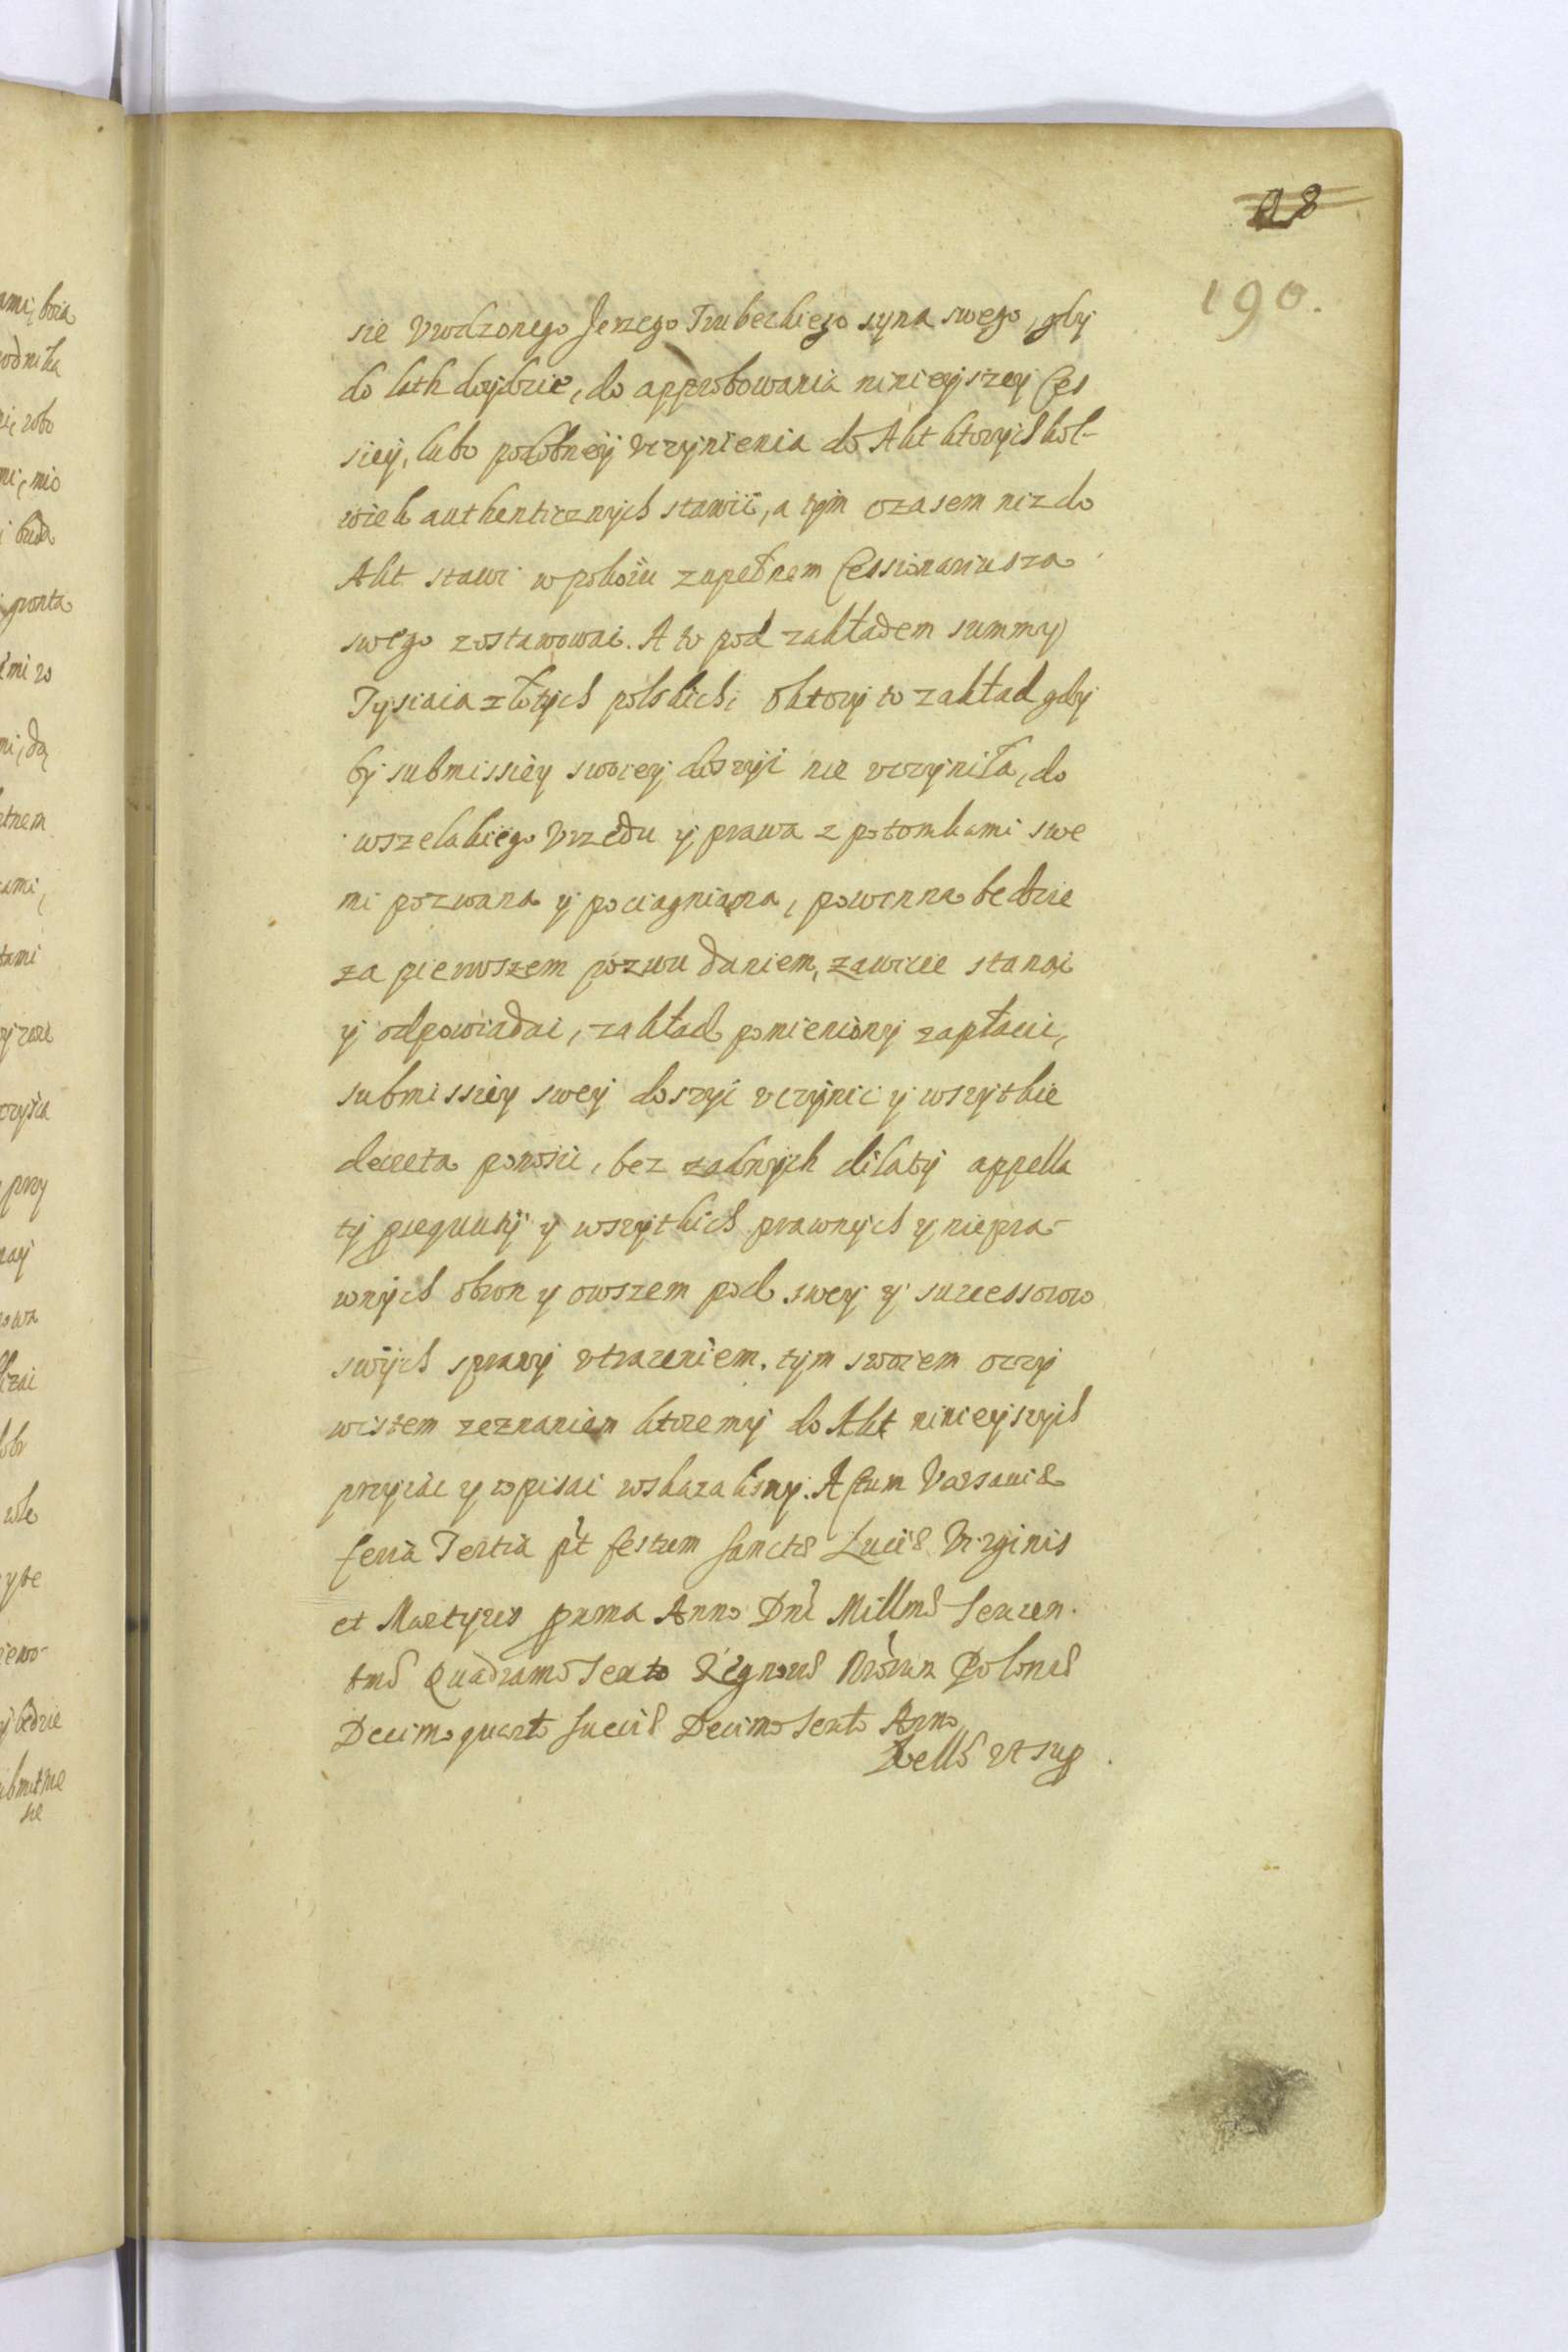 190.
sie Vrodzonego Jerzego Trubeckiego syna swego, gdy
do lath doydzie, do approbowania ninieyszey Ces
siey, lubo podobney vczynienia do Akt ktorychkol-
wiek authenticznych stawić, a tym czasem niz do
Akt stawi w pokoiu zupełnem Cessionariusza
swego zostawowai. A to pod zakładem summy
Tysiaca złotych polskich, o ktory to zakład gdy
by submissiey swoiey dosyć nie vczyniła, do
wszelakiego Vrzedu y prawa z potomkami swe
mi pozwana y pociagniona, powinna bedzie
za pierwszem pozwu daniem, zawicie stanąć
y odpowiadai, zakład pomieniony zapłacić,
submissiey swey dosyć vczynić y wszytkie
decreta ponosić, bez zadnych dilaty appella
ty y wszytkich prawnych y niepra-
wnych obron y owszem pod swey y successorow
swych sprawy vtraceniem. tym swoiem oczy
wistem zeznaniem ktoremy do Akt ninieyszych
przyiąć y wpisai wskazalismy. Actum Varsauiæ
feria Tertia pt festum Sanctæ Luciæ Virginis
et Martyris prima Anno Dni Millmo Sexcen
tmo Quadramo Sexto Regnorũ Nrorum Poloniæ
Decimo quarto Sueciæ Decimo Sexto Anno
ut sup